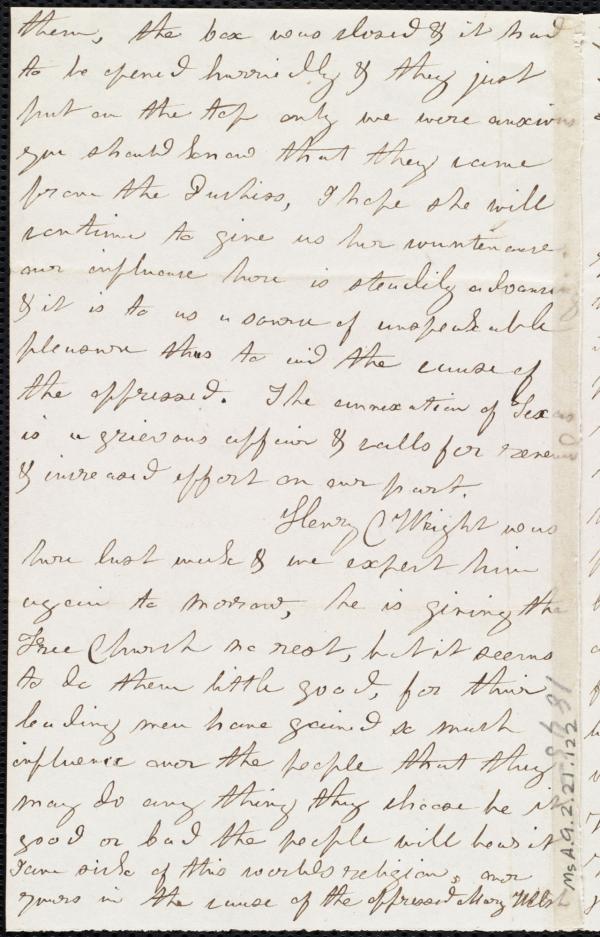 them, the box was closed & it had
to be opened hurriedly & they just
put on the top only we were anxious
you should know that they came
from the Duchess, I hope she will
continue to give us her countenance
our influence here is steadily advance
& it is to us a source of unspeakable
pleasure thus to aid the cause of
the oppressed. The annexation of Texas
is a grievous affair & calls for renewed
& increased effort on our part.
Henry C Wright was
here last week & we expect him
again to morrow, he is giving the
Free Church no rest, but it seems
to do them little good, for their
leading men have gained so much
influence over the people that they
may do any thing they choose be it
good or bad the people will bear it
I am sick of this worlds religion, ever
yours in the cause of the oppressed Mary Welsh
Ms.A.9.2.21.122